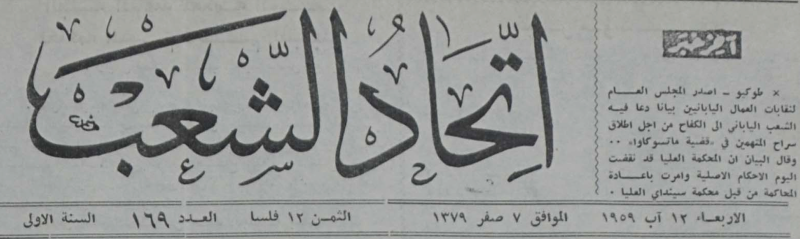 اتحاد الشعب
آخر خبر
× طوكيو – اصدر المجلس العام
لنقابات العمال اليابانيين بيانا دعا فيه
الشعب الياباني الى الكفاح من اجل اطلاق
سراح المتهمين في «قضية ماتسوكاوا» ٠٠
وقال البيان ان المحكمة العليا قد نقضت
اليوم الاحكام الاصلية وامرت باعادة
المحاكمة من قبل محكمة سينداي العليا ٠
الاربعاء ١٢ آب ١٩٥٩ الموافق ٧ صفر ١٣٧٩ الثمن ١٢ فلسا العدد ١٦٩ السنة الاولى